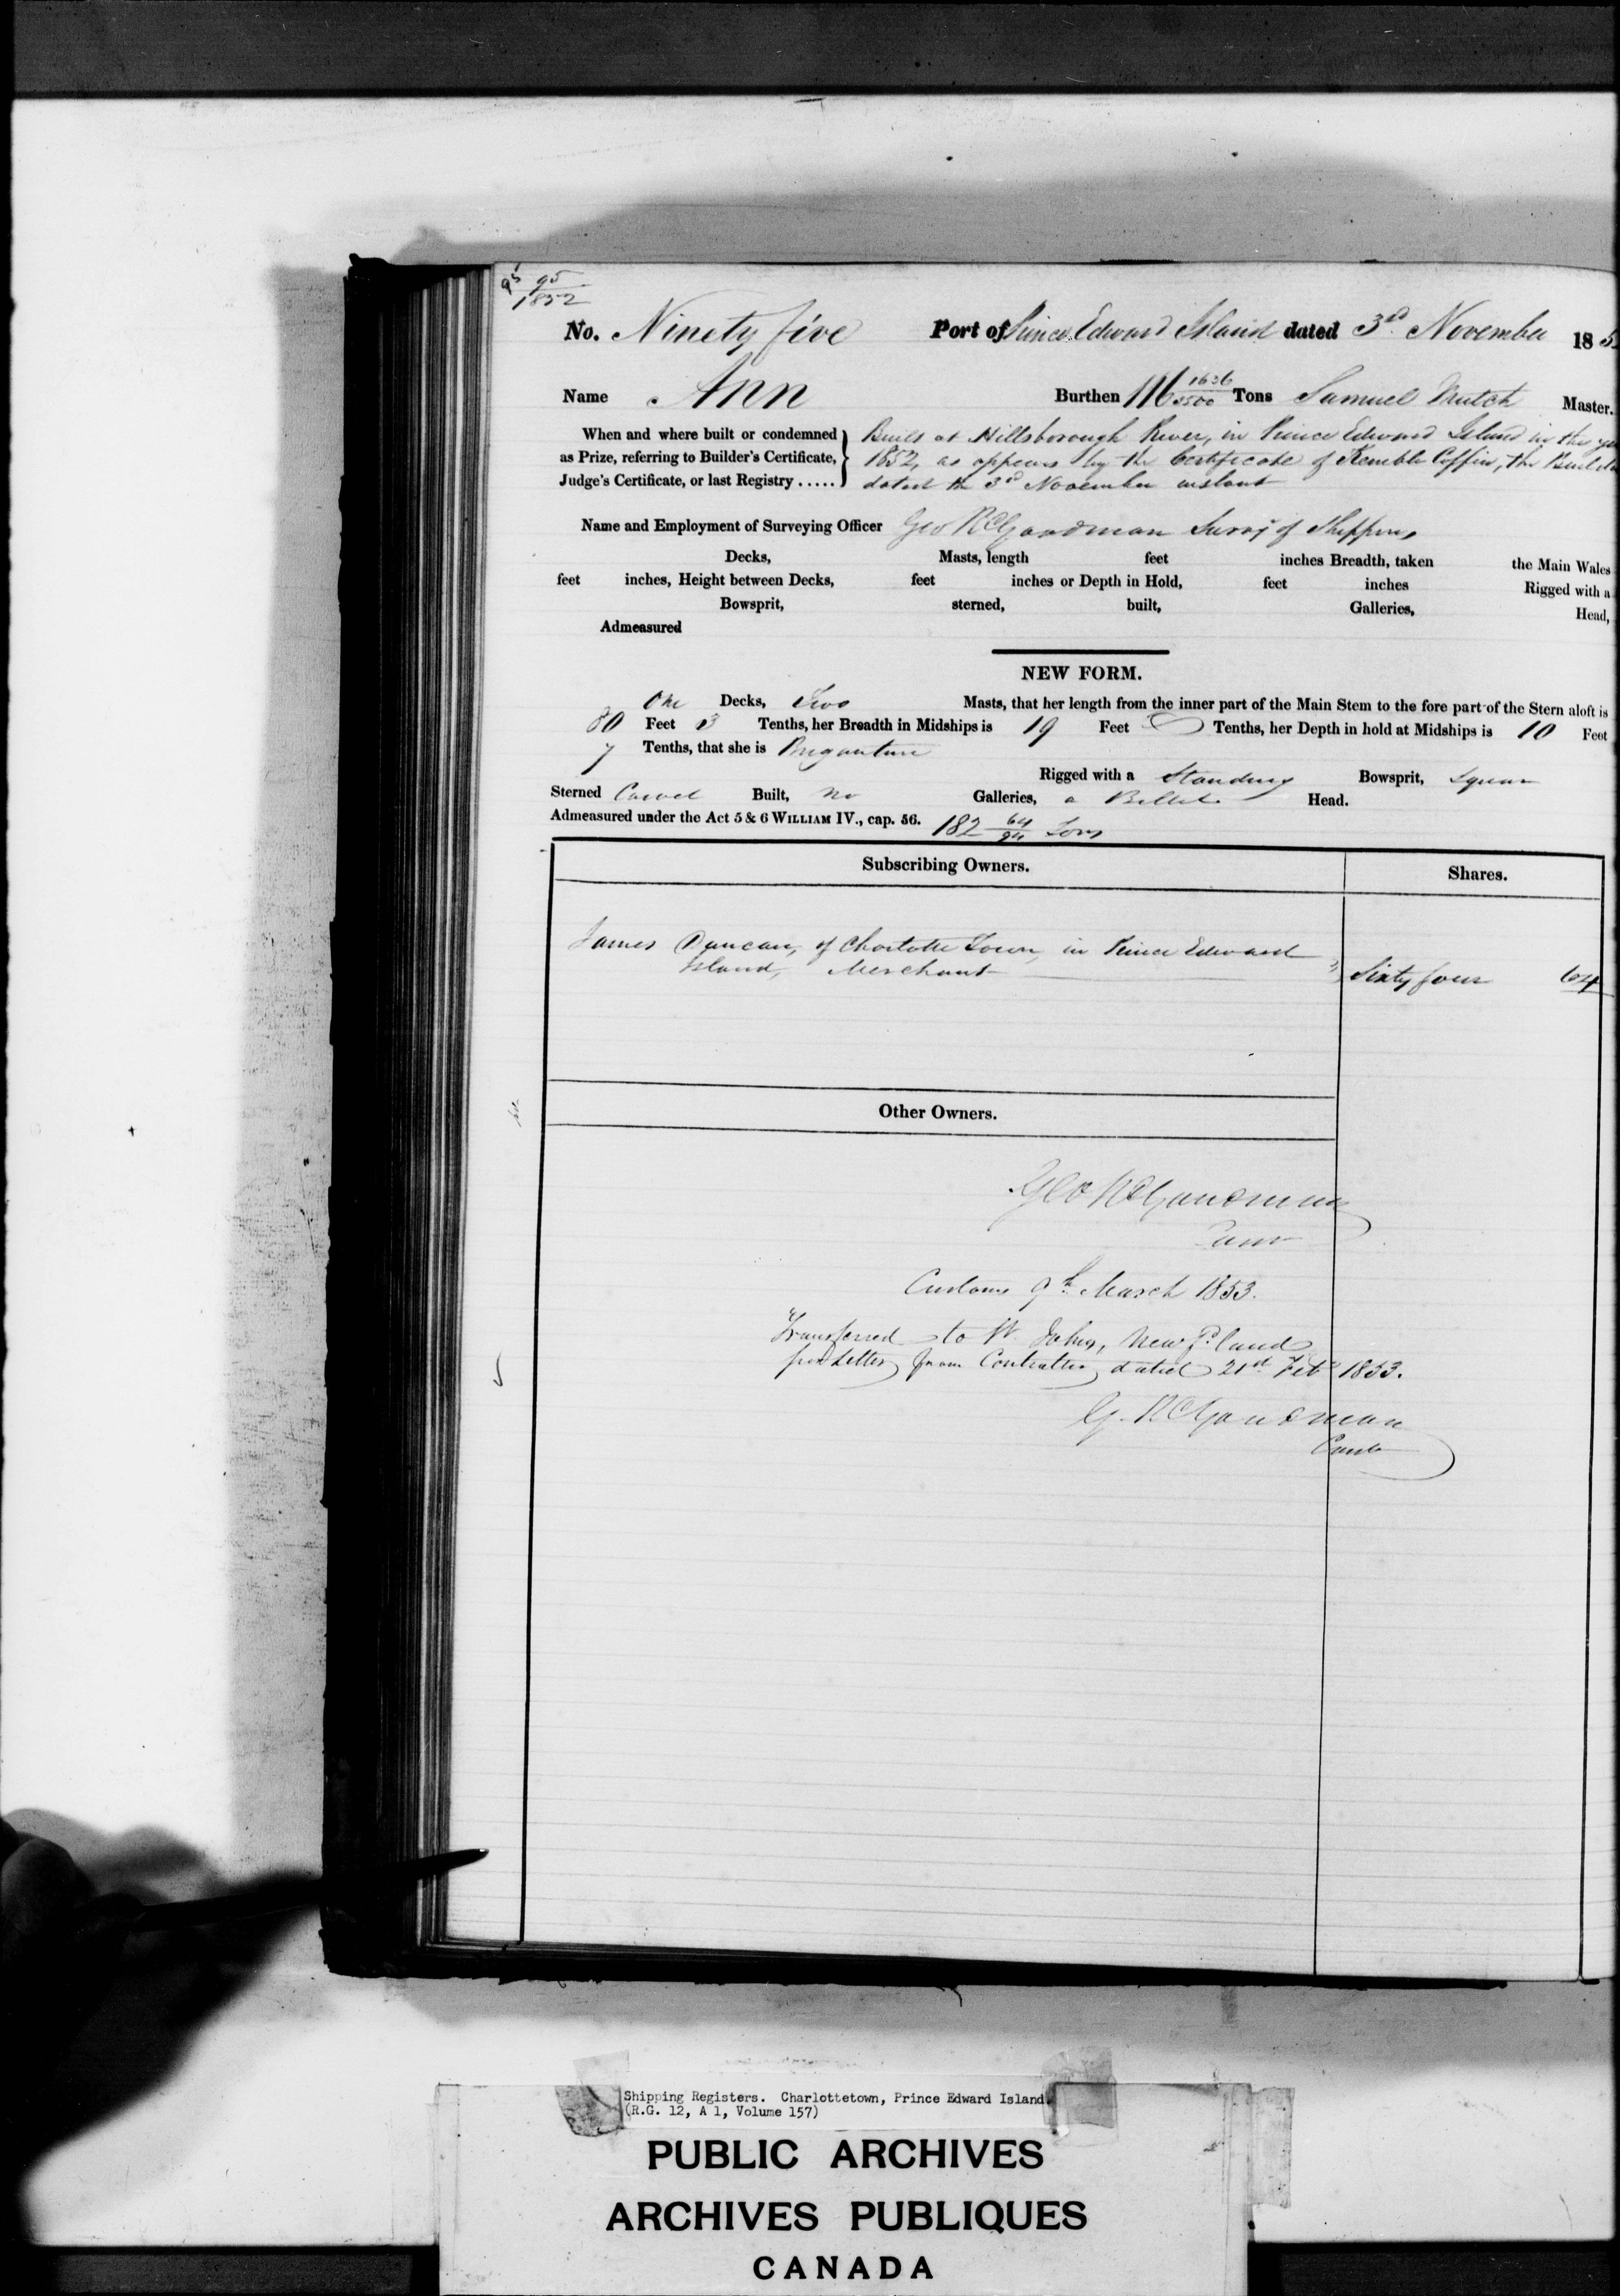 95 95
1852
No. Ninety five Port of Prince Edward Island dated 3rd November 185
Name Ann Burthen 116 1636/3500 Tons Samuel Mutch Master.
When and where built or condemned Built at Hillsborough River, in Prince Edward Island in the
as Prize, referring to Builder's Certificate, 1852, as appears by the Certificate of Kemble Coffin, the
Judge's Certificate, or last Registry ..... dated the 3rd November instant
Name and Employment of Surveying Officer Geo R Goodman Survr of Shipping
Decks, Masts, length feet inches Breadth, taken the Main Wales
feet inches, Height between Decks, feet inches or Depth in Hold, feet inches Rigged with a
Bowsprit, sterned, built, Galleries, Head,
Admeasured
NEW FORM.
One Decks, Two Masts, that her length from the inner part of the Main Stem to the fore part of the Stern aloft is
80 Feet 3 Tenths, her Breadth in Midships is 19 Feet Tenths, her Depth in hold at Midships is 10 Feet
7 Tenths, that she is Brigantine
Rigged with a Standing Bowsprit, Square
Sterned Carvel Built, no Galleries, a Billet Head.
Admeasured under the Act 5 & 6 WILLIAM IV., cap. 56. 182 64/94 Tons
Subscribing Owners. Shares.
James Duncan, of Charlotte Town, in Prince Edward
Island, Merchant Sixty four 64
Other Owners.
Geo R Goodman
Customs 9th March 1853.
Transferred to St Johns, New Fd land
per Letter from dated 21st Feb 1853.
G. R Goodman
Shipping Registers. Charlottetown, Prince Edward Island
(R.G. 12, A 1, Volume 157)
PUBLIC ARCHIVES
ARCHIVES PUBLIQUES
CANADA